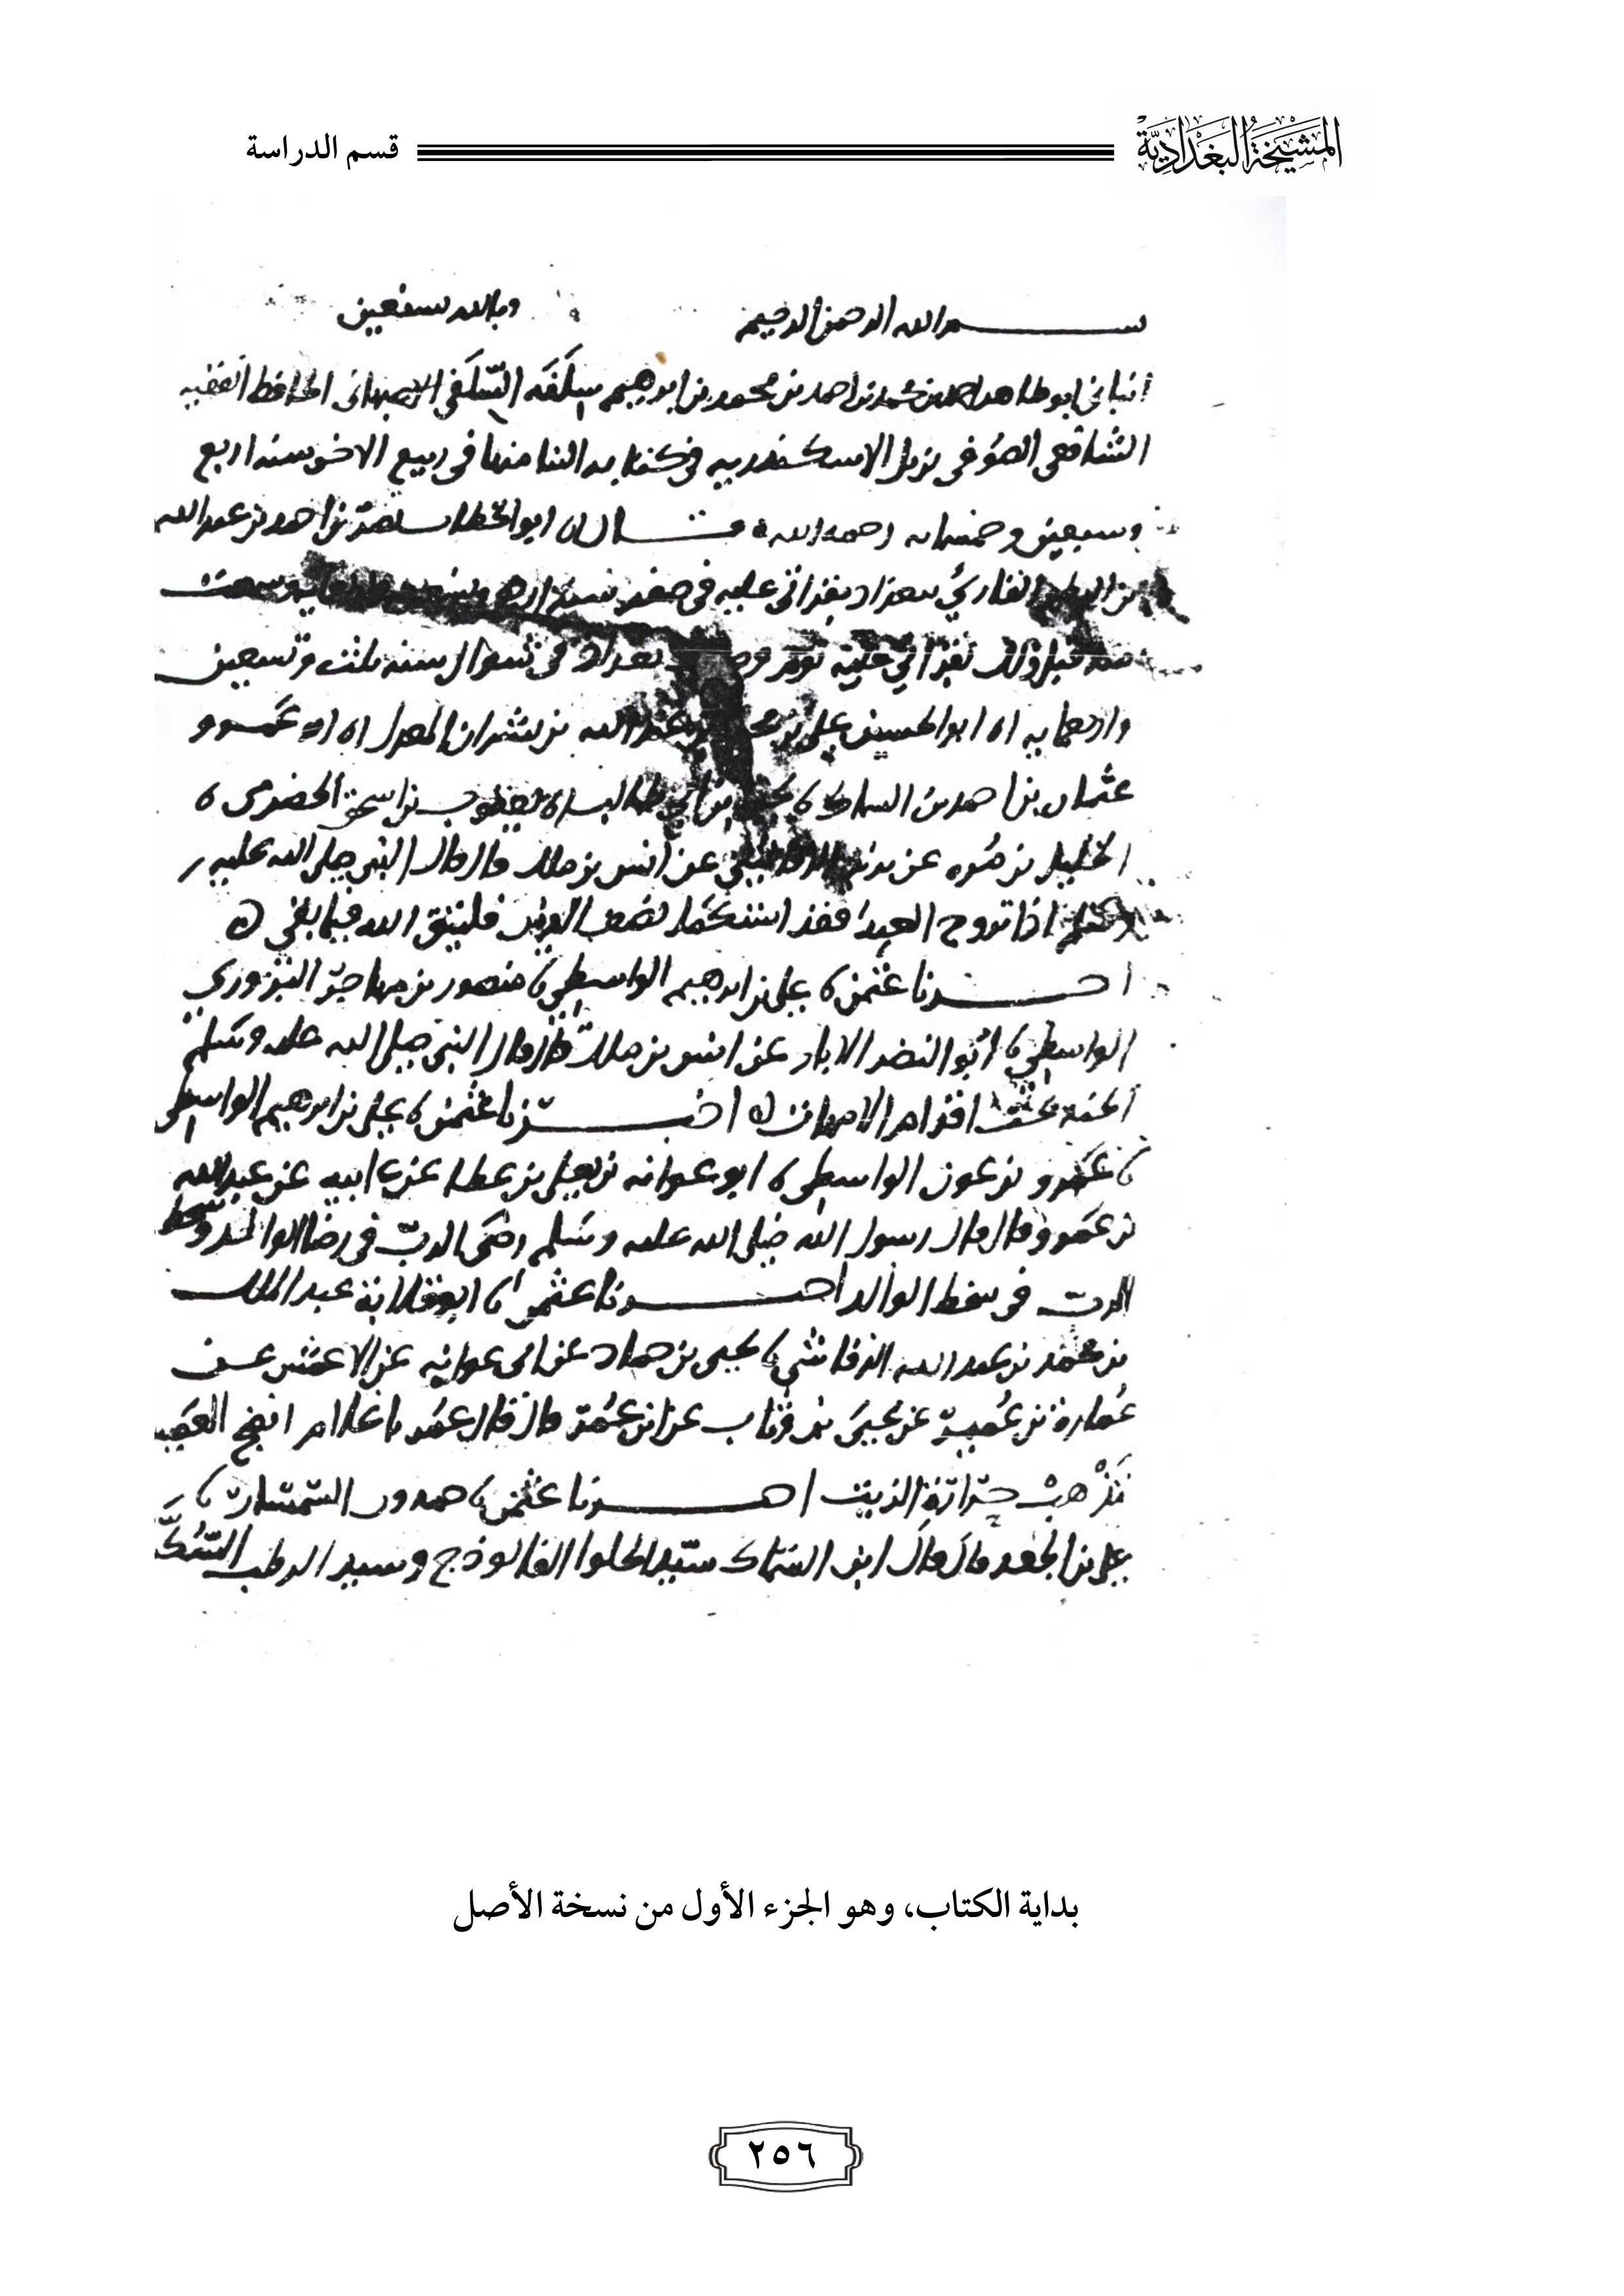 المشيخة البغدادية
قسم الدراسة
بسم الله الرحمن الرحيم وبالله نستعين
انباني ابو طاهر احمد بن محمد بن احمد بن محمد بن ابرهيم سِلَفَه السِّلَفي الاصبهاني الحافظ الفقيه
الشافعي الصوفي نزيل الاسكندريه في كتابه الينا منها في ربيع الاخر سنه اربع
وسبعين وخمسمايه رحمه الله قال انا ابو الخطاب نصر بن احمد بن عبد الله
بن البطر القاري ببغداد بقراتي عليه في صفر سنة وسمعت
منه قبل ذلك بقراتي عليه يوم بغداد في شوال سنه ثلث وتسعين
واربعمايه انا ابو الحسين علي بن عبد الله بن بشران المعدل انا ابو عمرو
عثمان بن احمد بن السماك نا يحيى بن ابي طالب نا يعقوب بن اسحق الحضرمي نا
الخليل بن مُرّه عن يزيد الرقاشي عن انس بن ملك قال قال النبي صلى الله عليه
وسلم اذا تزوج العبد فقد استكمل نصف الدين فليتق الله فيما بقي
اخبرنا عثمن نا علي بن ابرهيم الواسطي نا منصور بن مهاجر البزوري
الواسطي نا ابو النضر الابار عن انس بن ملك قال قال النبي صلى الله عليه وسلم
الجنة تحت اقدام الامهات اخبرنا عثمن نا علي بن ابرهيم الواسطي
نا عمرو بن عون الواسطي نا ابو عوانه عن يعلى بن عطا عن ابيه عن عبد الله
بن عمرو قال قال رسول الله صلى الله عليه وسلم رضى الرب في رضا الوالد وسخط
الرب في سخط الوالد اخبرنا عثمن نا ابو قلابة عبد الملك
بن محمد بن عبد الله الرقاشي نا يحيى بن حماد عن ابي عوانه عن الاعمش عن
عُمارة بن عُمير عن يحيى بن وثاب عن ابن عُمر قال قال عمر يا غلام انضج العصيد
تذهبْ حرارةُ الزيت اخبرنا عثمن نا حمدون السمسار نا
علي بن الجعد قال قال ابن السماك سيّد الحلوا الفالوذج وسيد الرطب السُّكّر
بداية الكتاب، وهو الجزء الأول من نسخة الأصل
٢٥٦